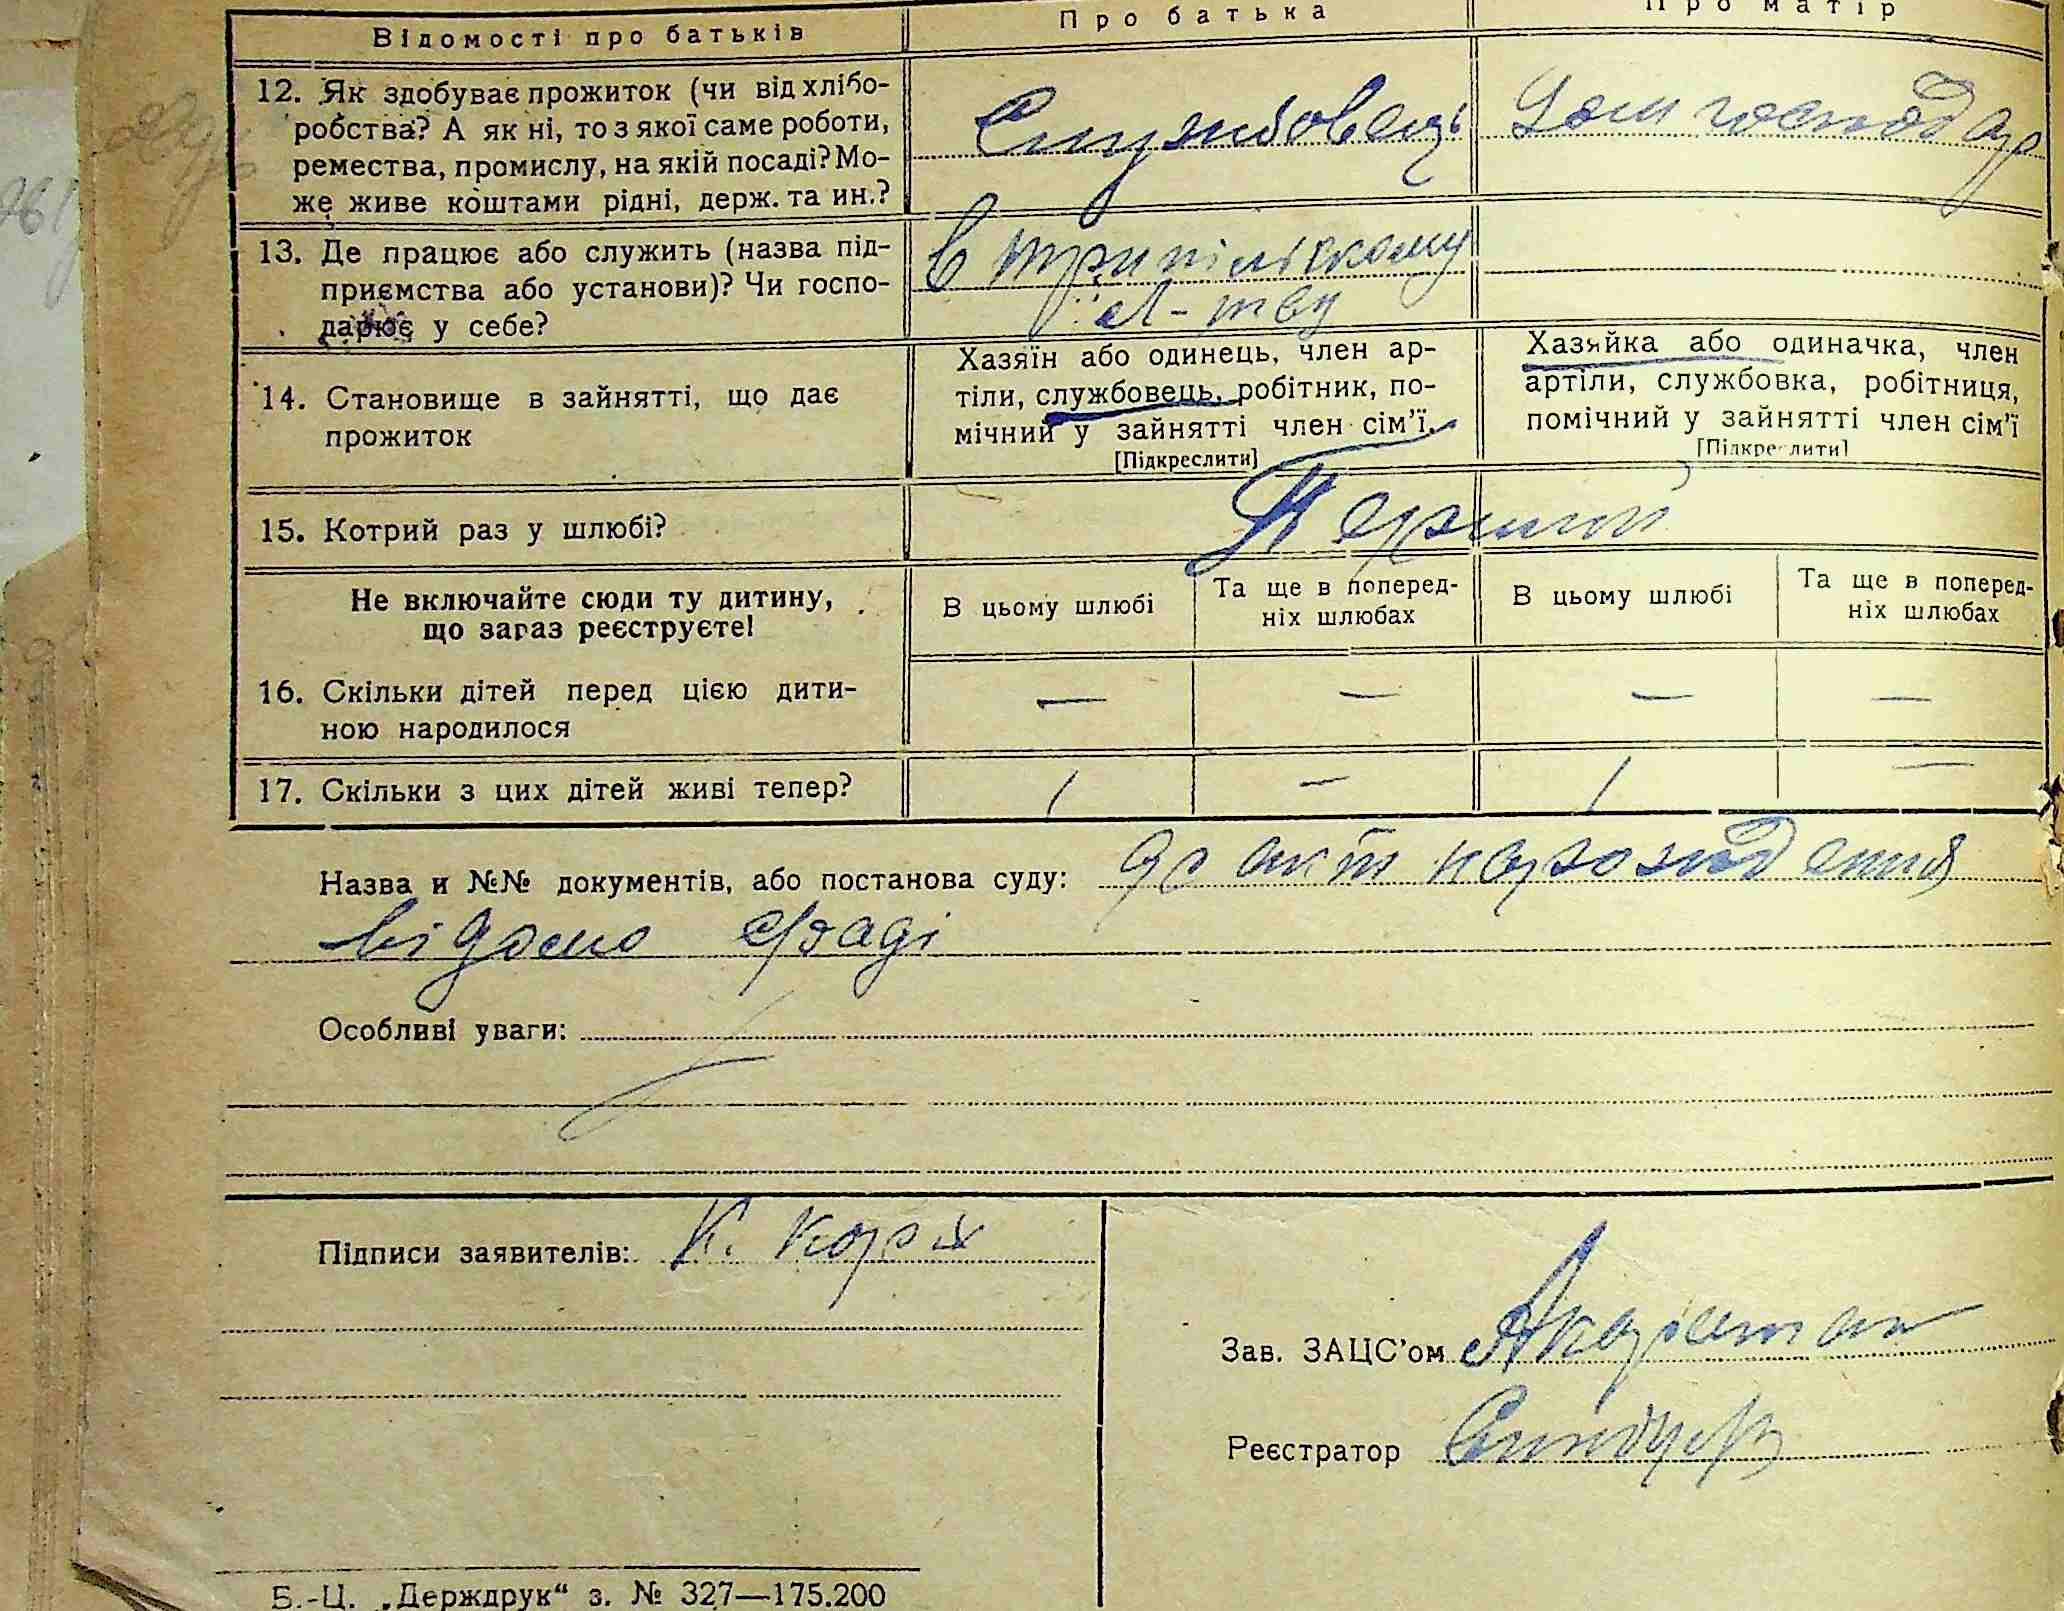 Відомості про батьків
Про батька
Про матір
12. Як здобуває прожиток (чи від хлібо-
робства? А як ні, то з якої саме роботи,
ремества, промислу, на якій посаді? Мо-
же живе коштами рідні, держ. та ин.?
Службовець
Дом господар
13. Де працює або служить (назва під-
приємства або установи)? Чи госпо-
дарює у себе?
в Трипільському
14. Становище в зайнятті, що дає
прожиток
Хазяїн або одинець, член ар-
тіли, службовець, робітник, по-
мічний у зайнятті член сім'ї.
[Підкреслити]
Хазяйка або одиначка, член
артіли, службовка, робітниця,
помічний у зайнятті член сім'ї
[Підкреслити]
15. Котрий раз у шлюбі?
Перший
Не включайте сюди ту дитину,
що зараз реєструєте!
В цьому шлюбі
Та ще в поперед-
ніх шлюбах
В цьому шлюбі
Та ще в поперед-
ніх шлюбах
16. Скільки дітей перед цією дити-
ною народилося
— — — —
17. Скільки з цих дітей живі тепер?
1 — 1 —
Назва и №№ документів, або постанова суду: народження
відомо
Особливі уваги:
Підписи заявителів: К.
Зав. ЗАЦС'ом
Реєстратор
Б.-Ц. „Держдрук“ з. № 327—175.200